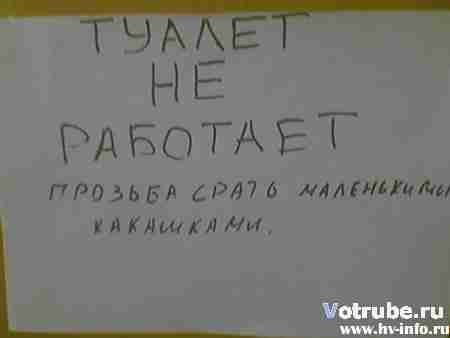 ТУАЛЕТ
НЕ
РАБОТАЕТ
ПРОЗЬБА СРАТЬ МАЛЕНЬКИМИ
КАКАШКАМИ.
Votrube.ru
www.hv-info.ru